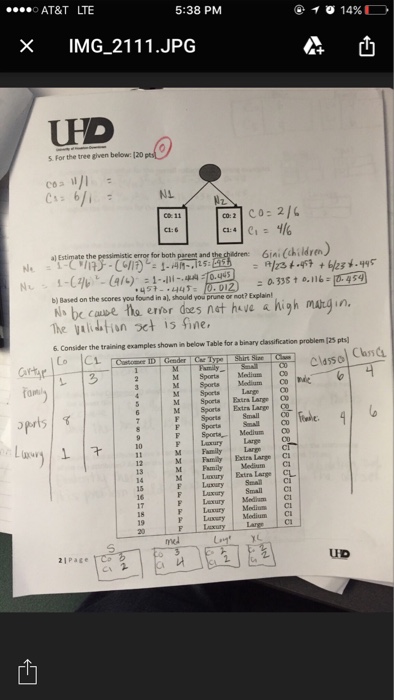 AT&T LTE 5:38 PM 14%
IMG_2111.JPG
UHD
5. For the tree given below: [20 pts]
0
N1
N2
C0: 11
C1: 6
C0: 2
C1: 4
C0 = 2/6
C1 = 4/6
a) Estimate the pessimistic error for both parent and the children:
Gini (children)
= 0.335 + 0.116 = 0.454
b) Based on the scores you found in a), should you prune or not? Explain!
No because the error does not have a high margin.
The validation set is fine.
6. Consider the training examples shown in below Table for a binary classification problem [25 pts]
Customer ID Gender Car Type Shirt Size Class
1 M Family Small C0
2 M Sports Medium C0
3 M Sports Medium C0
4 M Sports Large C0
5 M Sports Extra Large C0
6 M Sports Extra Large C0
7 F Sports Small C0
8 F Sports Small C0
9 F Sports Medium C0
10 F Luxury Large C0
11 M Family Large C1
12 M Family Extra Large C1
13 M Family Medium C1
14 M Luxury Extra Large C1
15 F Luxury Small C1
16 F Luxury Small C1
17 F Luxury Medium C1
18 F Luxury Medium C1
19 F Luxury Medium C1
20 F Luxury Large C1
C0 C1
Cartype
Family 1 3
Sports 8
Luxury 1 7
Class0 Class1
male 6 4
Female 4 6
2 | Page
UHD